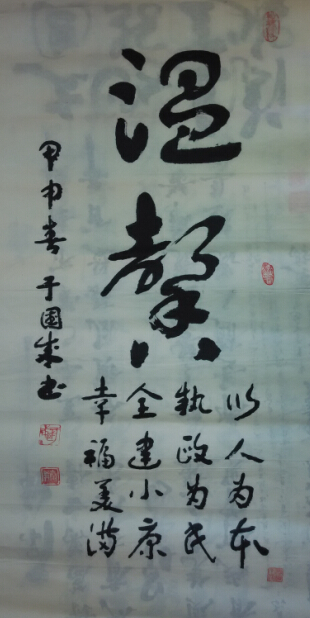 温馨
以人为本
执政为民
全建小康
幸福美满
甲申春于国成书